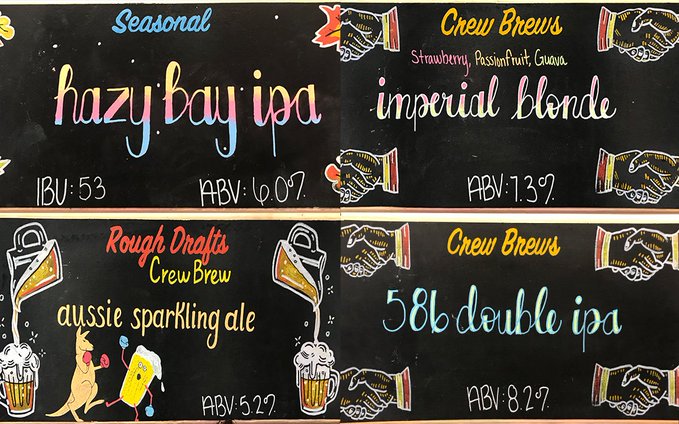 Seasonal
hazy bay ipa
IBU: 53
ABV: 6.0%
Crew Brews
Strawberry, PassionFruit, Guava
imperial blonde
ABV: 7.3%
Rough Drafts
Crew Brew
aussie sparkling ale
ABV: 5.2%
Crew Brews
586 double ipa
ABV: 8.2%